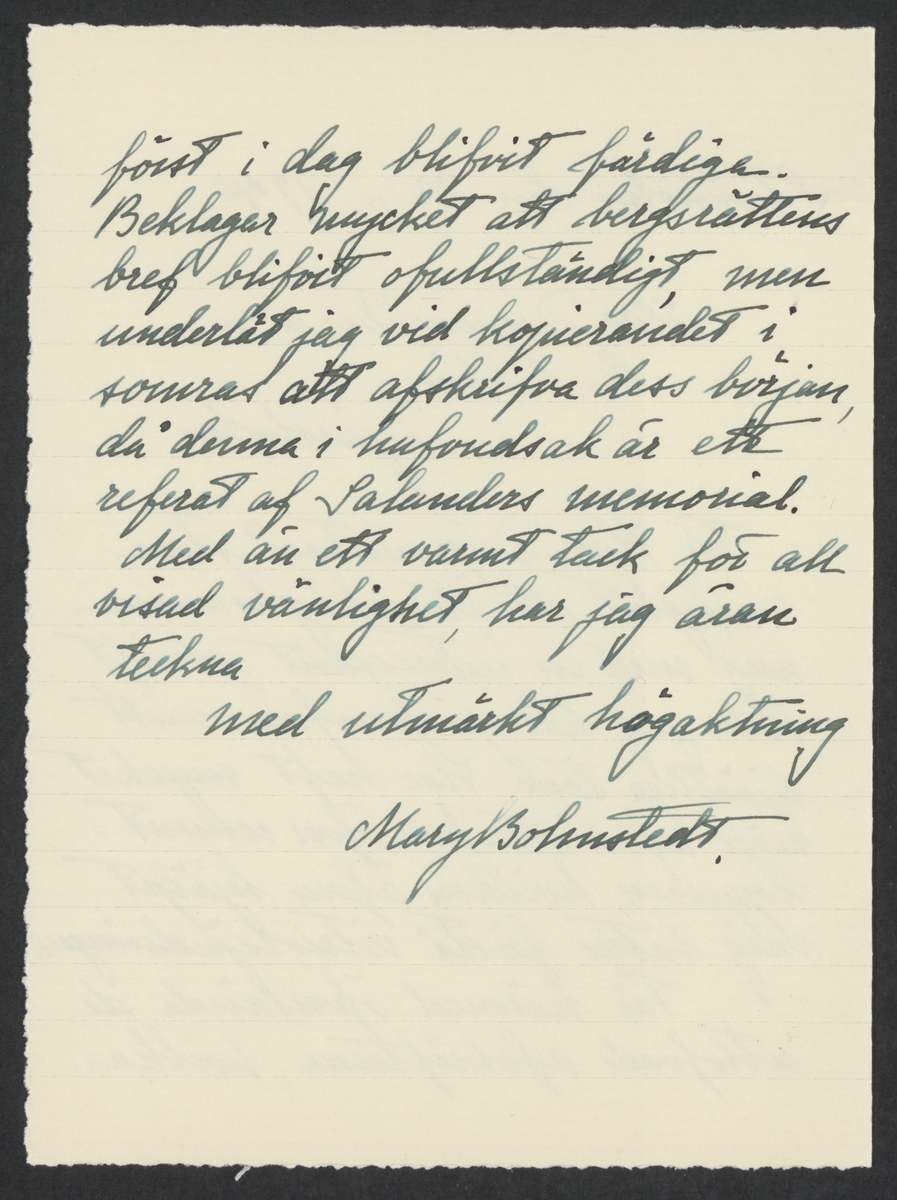 först i dag blifvit färdiga.
Beklagar mycket att bergsrättens
bref blifvit ofullständigt, men
underlät jag vid kopierandet i
somras att afskrifva dess början,
då denna i hufvudsak är ett
referat af Salanders memorial.
Med än ett varmt tack för all
visad vänlighet, har jag äran
teckna
med utmärkt högaktning
Mary Bolmstedt.